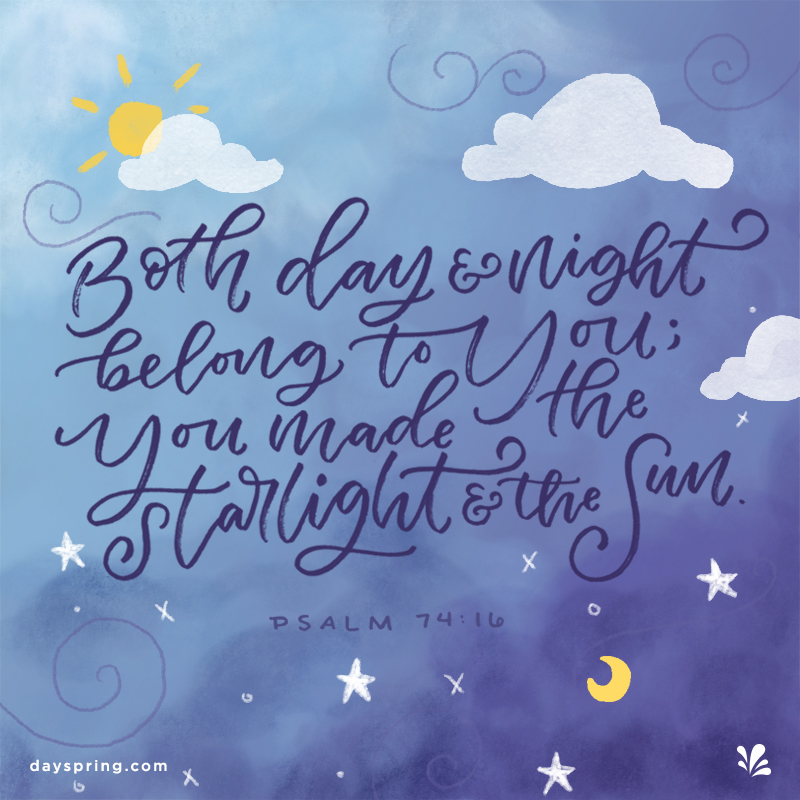 Both day & night
belong to You;
You made the
starlight & the Sun.
PSALM 74:16
dayspring.com